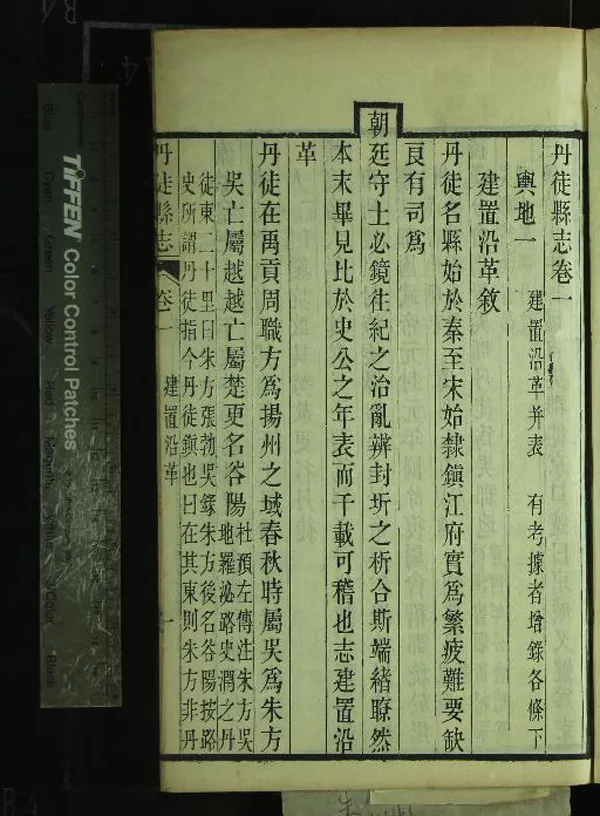 丹徒縣志卷一
輿地一 建置沿革并表 有考據者增錄各條下
建置沿革敘
丹徒名縣始於秦至宋始隸鎮江府實爲繁疲難要缺
良有司爲
朝廷守土必鏡往紀之治亂辨封圻之析合斯端緒瞭然
本末畢見比於史公之年表而千載可稽也志建置沿
革
丹徒在禹貢周職方爲揚州之域春秋時屬吳爲朱方
吳亡屬越越亡屬楚更名谷陽
杜預左傳注朱方吳
地羅泌路史潤之丹
徒東二十里曰朱方張勃吳錄朱方後名谷陽按路
史所謂丹徒指今丹徒鎮也曰在其東則朱方非丹
丹徒縣志 卷一 建置沿革 一
TIFFEN Color Control Patches
Blue Cyan Green Yellow Red Magenta White 3/Color Black